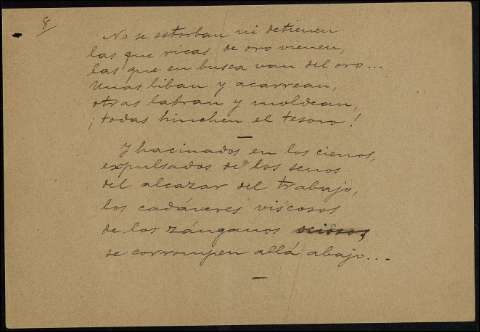 8
No se estorban ni detienen
las que ricas, de oro vienen,
las que en busca van del oro...
Unas liban y acarrean,
otras labran y moldean,
¡todas hinchen el tesoro!
—
Y hacinados en los cienos,
expulsados de los senos
del alcazar del trabajo,
los cadáveres viscosos
de los zánganos ociosos,
se corrompen allá abajo...
—